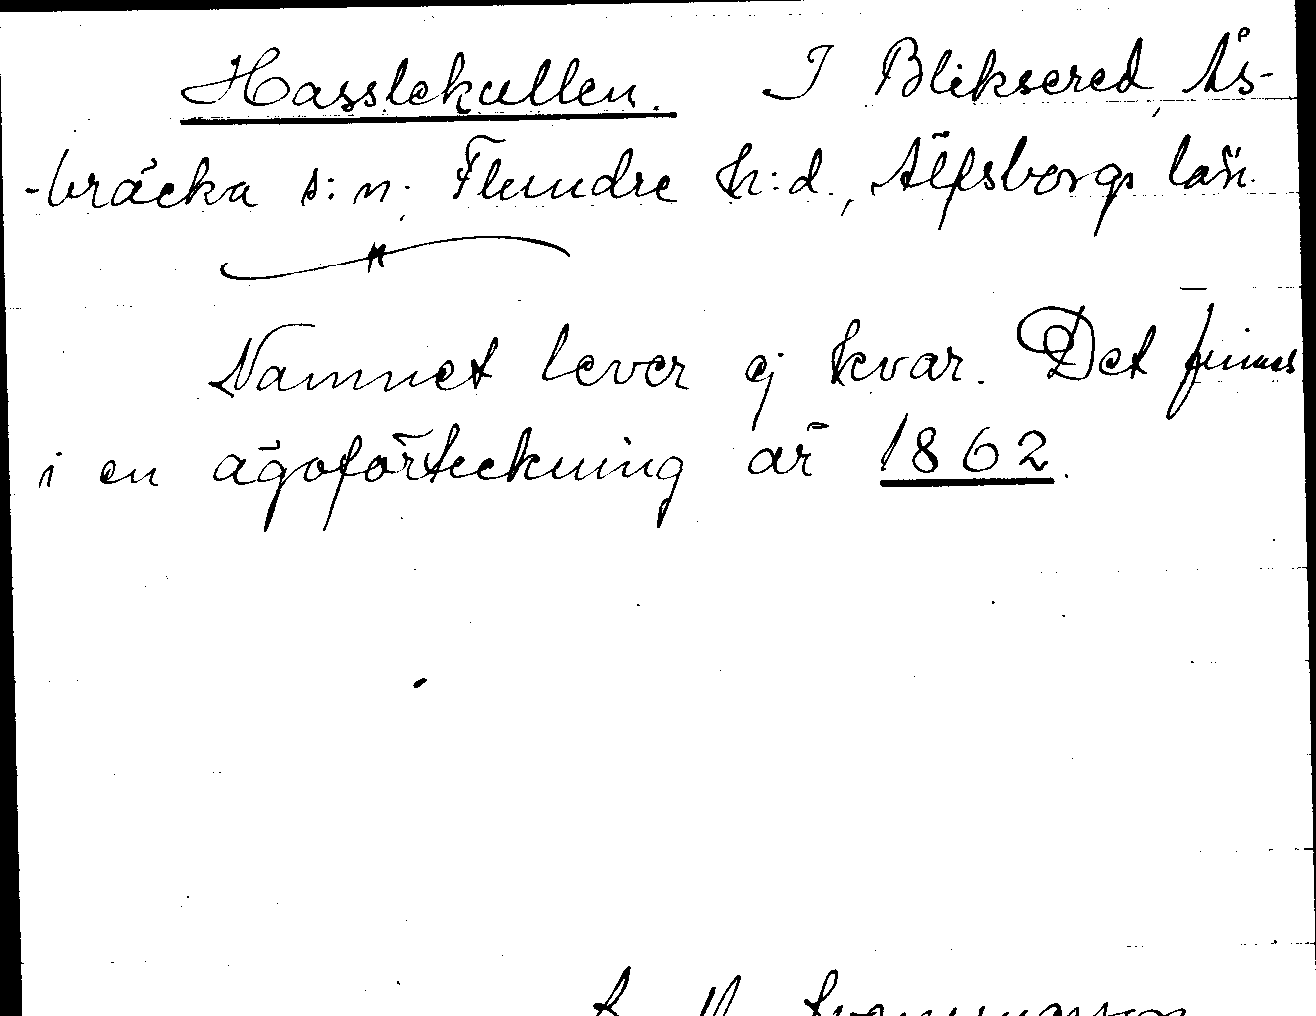 Hasslekullen. I Bliksered, Ås-
-bräcka s:n. Flundre h:d., Älfsborgs län.
Namnet lever ej kvar. Det finnes
i en ägoförteckning år 1862.